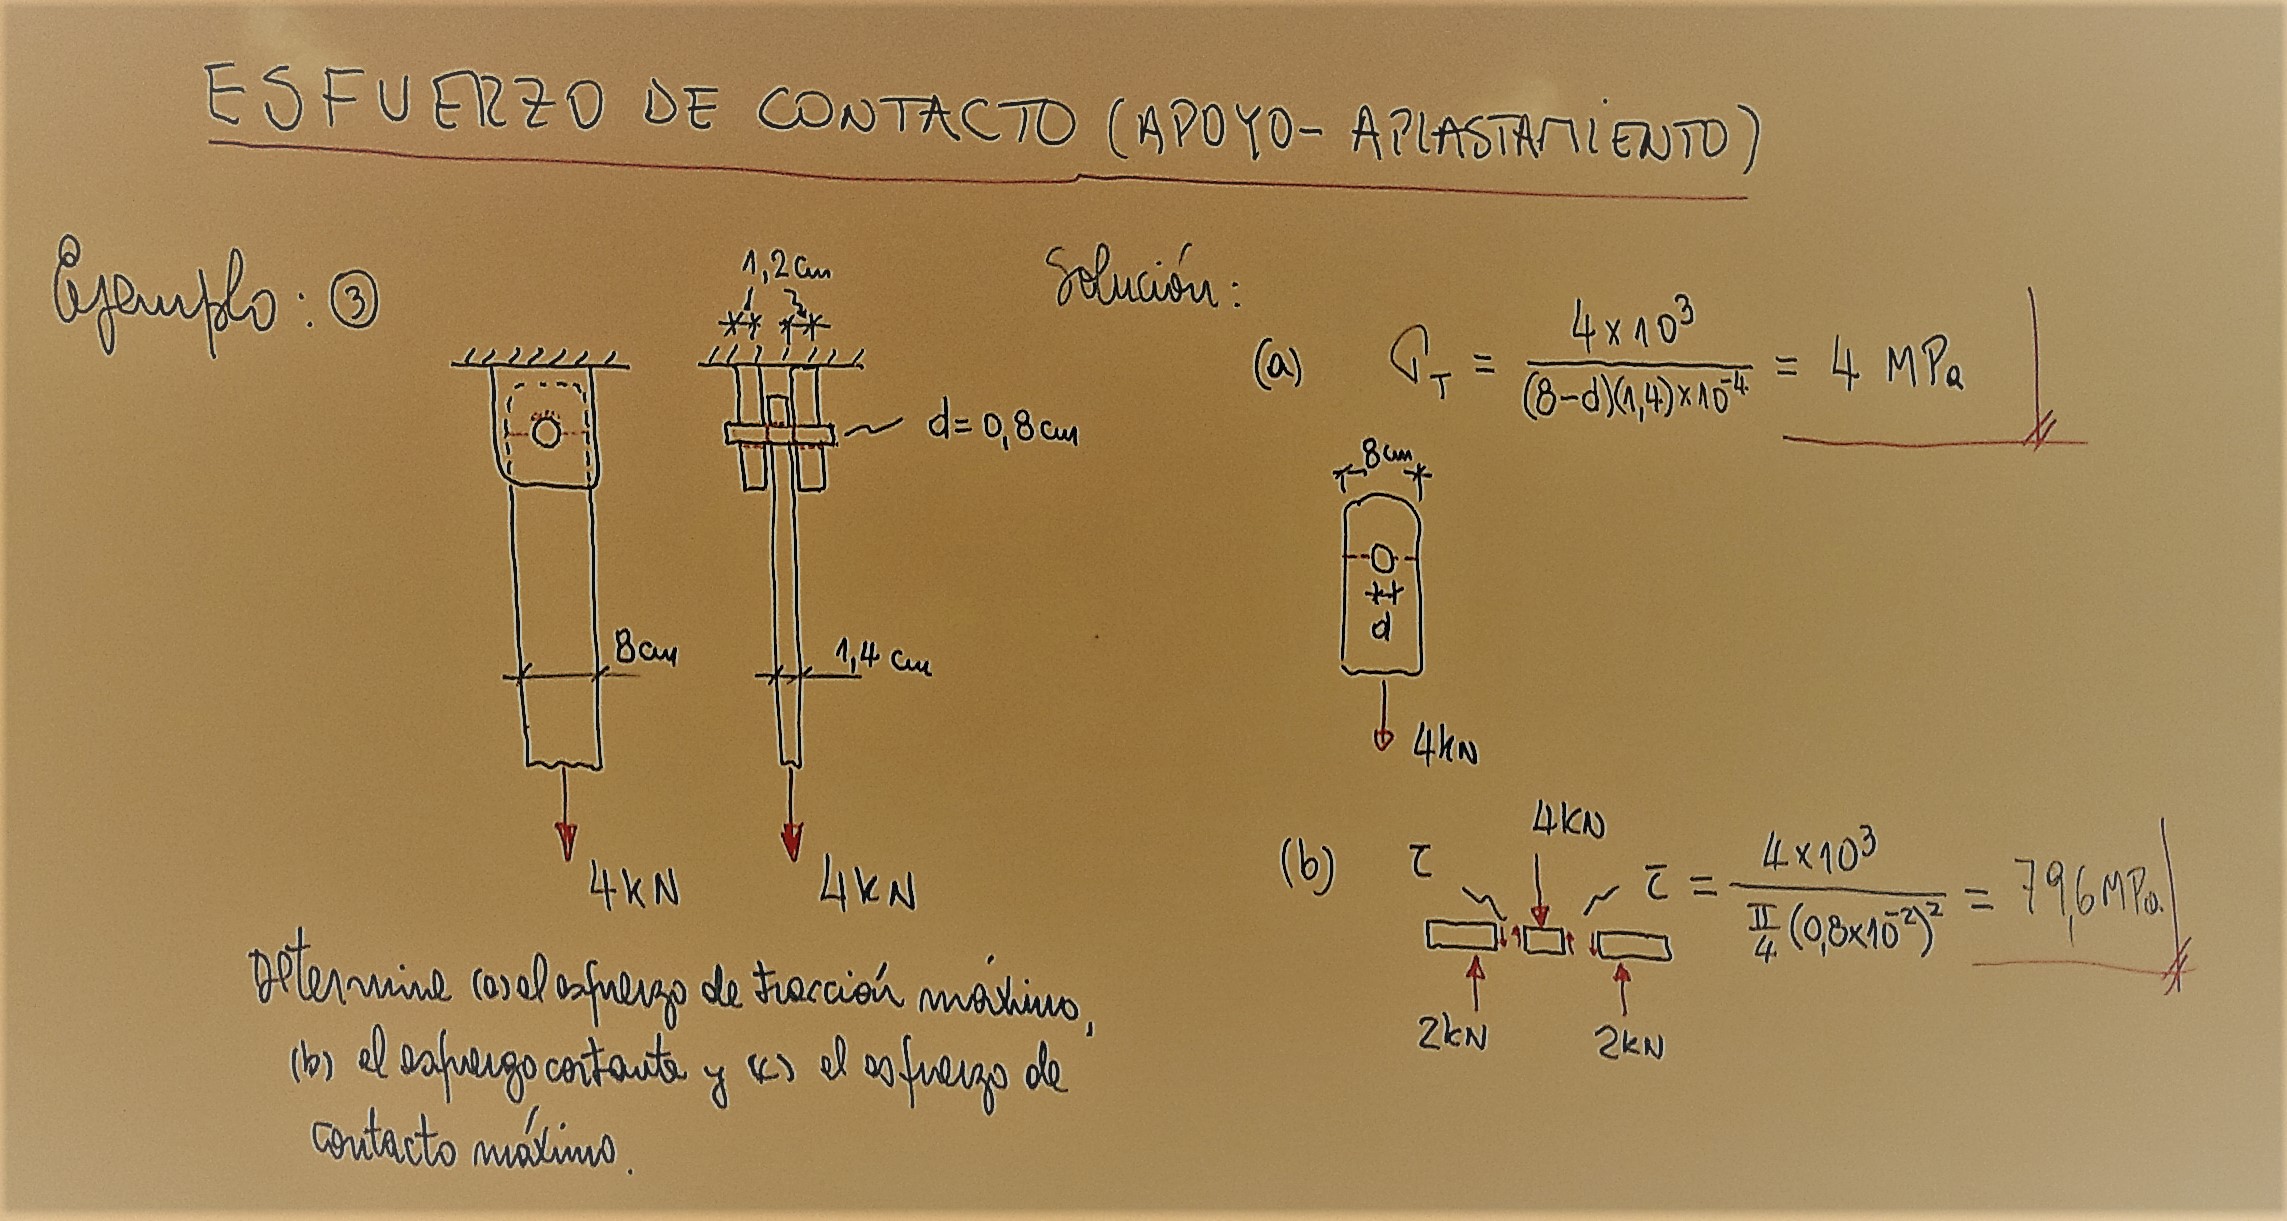 ESFUERZO DE CONTACTO (APOYO-APLASTAMIENTO)
Ejemplo: ③
1,2 cm
d = 0,8 cm
8 cm
1,4 cm
4 kN
4 kN
Determine (a) el esfuerzo de tracción máximo,
(b) el esfuerzo cortante y (c) el esfuerzo de
contacto máximo.
Solución:
(a) σT = 4×10³ / (8-d)(1,4)×10⁻⁴ = 4 MPa
8 cm
d
4 kN
(b) τ
4 kN
τ = 4×10³ / π/4 (0,8×10⁻²)² = 79,6 MPa.
2 kN
2 kN